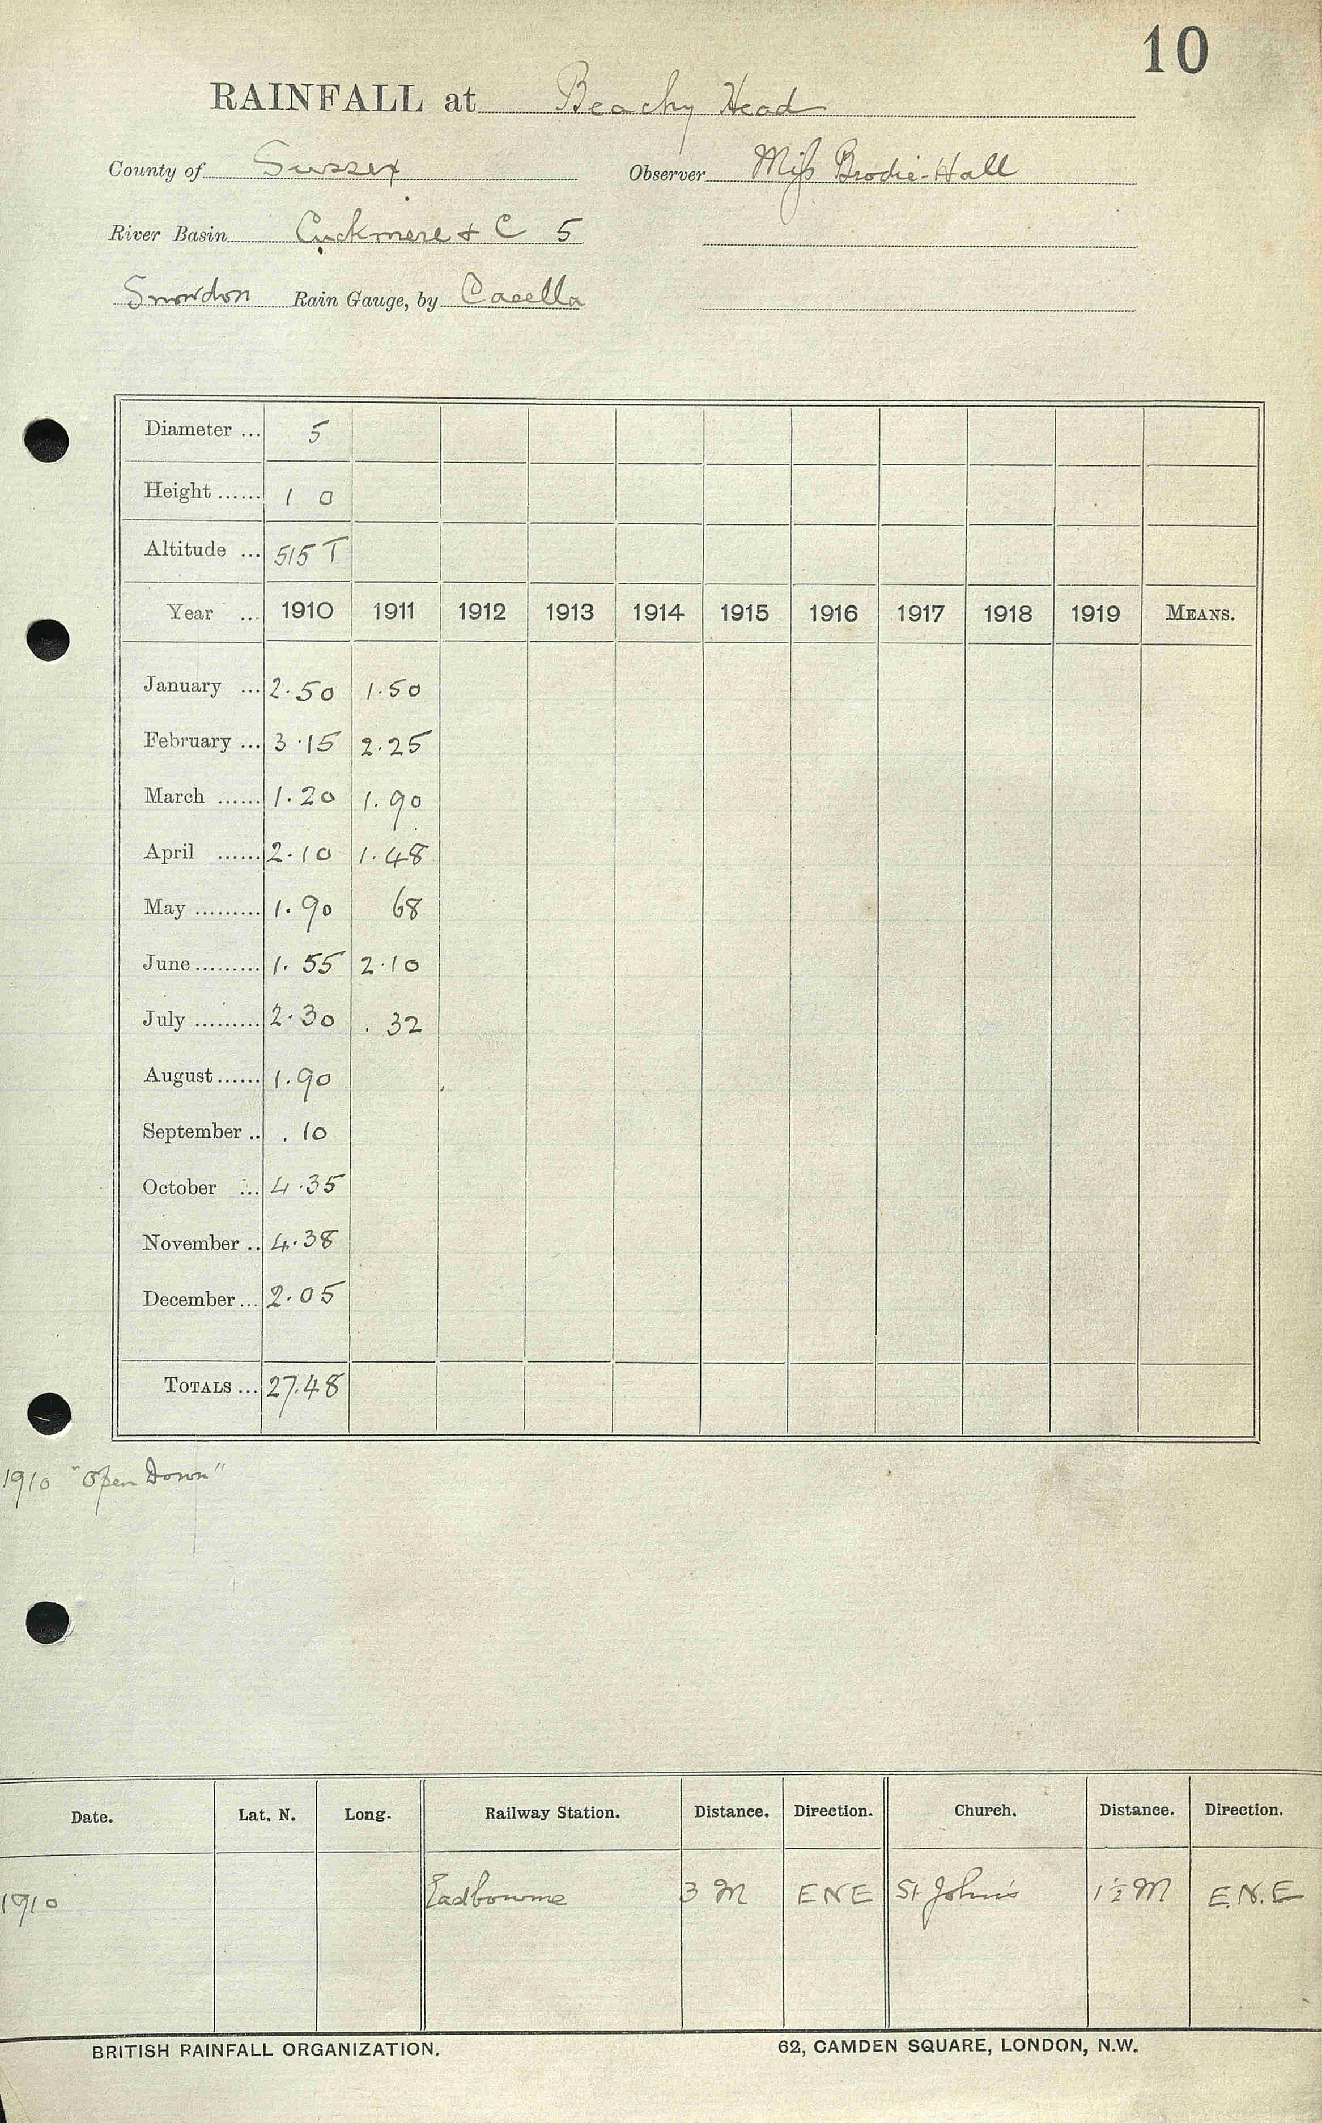 10
RAINFALL at Beachy Head
County of Sussex Observer Miss Brodie-Hall
River Basin Cuckmere & C 5
Snowdon Rain Gauge, by Casella
Diameter ... 5
Height ...... 1 0
Altitude ... 515 T
Year ... 1910 1911 1912 1913 1914 1915 1916 1917 1918 1919 MEANS.
January ... 2.50 1.50
February ... 3.15 2.25
March ...... 1.20 1.90
April ...... 2.10 1.48
May ......... 1.90 68
June ......... 1.55 2.10
July ......... 2.30 .32
August ...... 1.90
September .. .10
October ... 4.35
November .. 4.38
December ... 2.05
TOTALS ... 27.48
1910 "Open Down"
Date. Lat. N. Long. Railway Station. Distance. Direction. Church. Distance. Direction.
1910 Eastbourne 3 M ENE St John's 1½ M E.N.E
BRITISH RAINFALL ORGANIZATION. 62, CAMDEN SQUARE, LONDON, N.W.